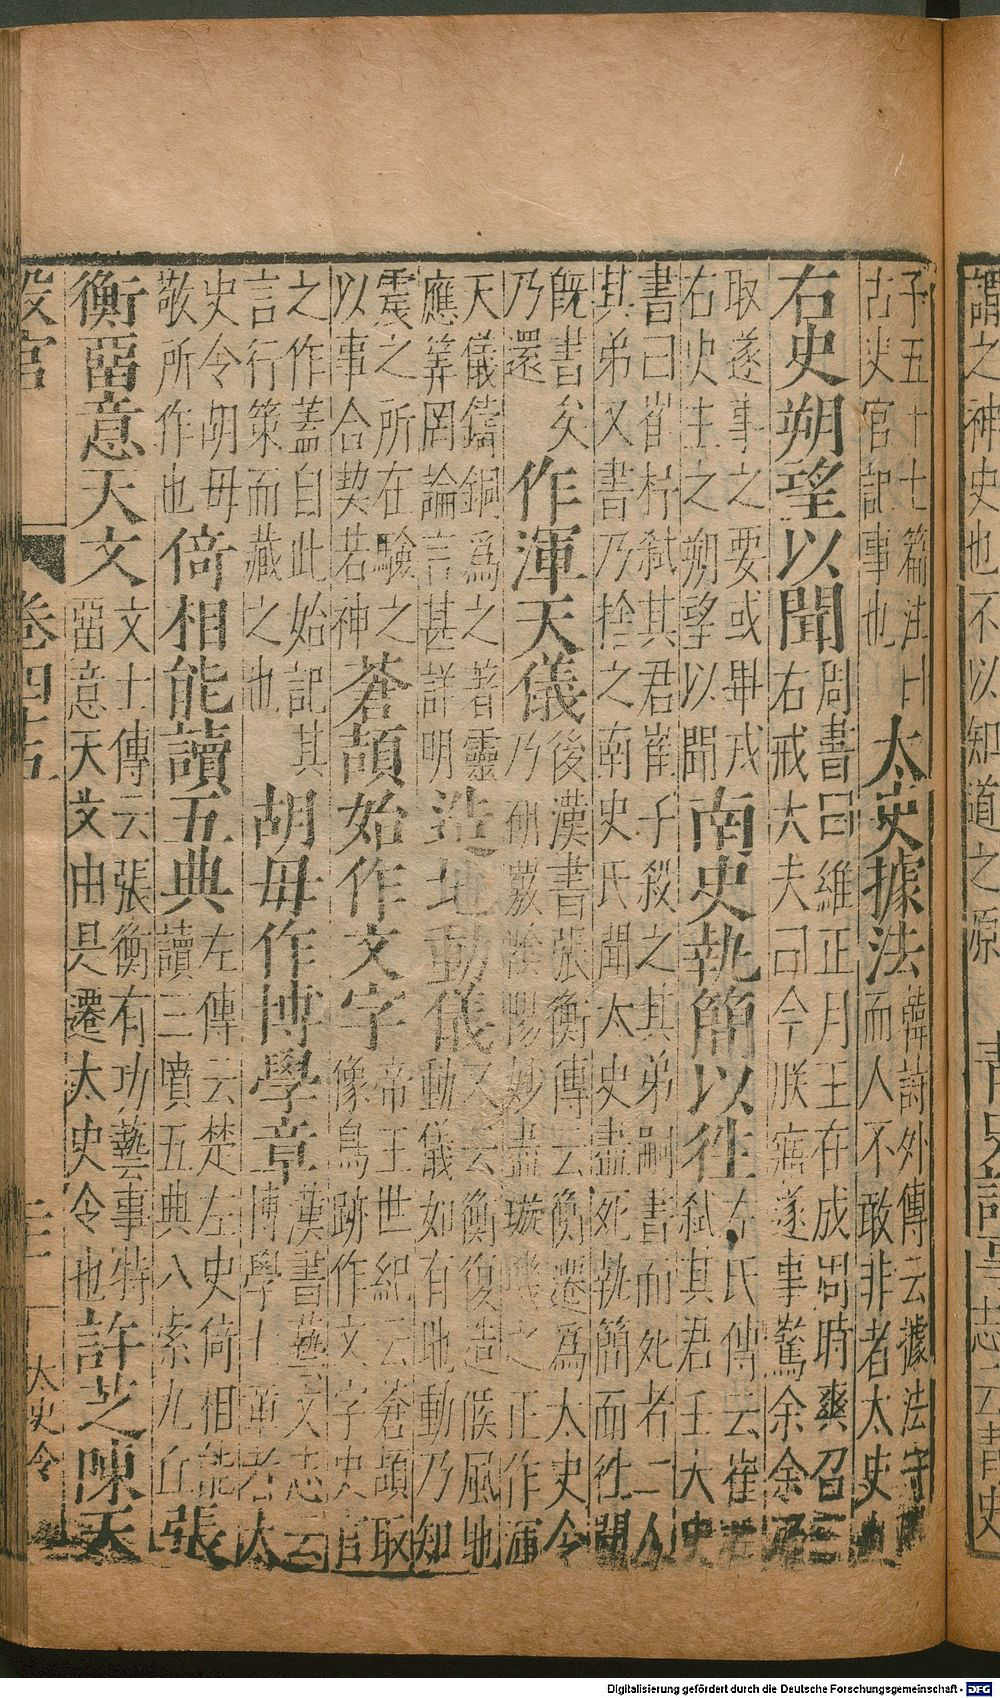 謂之神史也不以知道之源 青史記言
志云青史
子五十七篇注曰
古史官記事也
太史據法
韓詩外傳云據法守
而人不敢非者太史
右史朔望以聞
周書曰維正月王在成周時爽召三
右戒大夫曰今朕寤遂事驚余余
取遂事之要或畢戎
右史主之朔望以聞
南史執簡以往
左氏傳云崔
弒其君壬大史
書曰崔杼弒其君崔子殺之其弟嗣書而死者二人
其弟又書乃捨之南史氏聞太史盡死執簡而往聞
既書矣
乃還
作渾天儀
後漢書張衡傳云衡遷為太史令
乃研覈陰陽妙盡璇璣之正作渾
天儀鑄銅為之著靈
應筭罔論言甚詳明
造地動儀
又云衡復造候風地
動儀如有地動乃知
震之所在驗之
以事合契若神
蒼頡始作文字
帝王世紀云蒼頡取
像鳥跡作文字史官
之作蓋自此始記其
言行策而藏之也
胡毋作博學章
漢書藝文志云
博學七章者太
史令胡毋
敬所作也
倚相能讀五典
左傳云楚左史倚相能
讀三墳五典八索九丘
張
衡留意天文
文士傳云張衡有功藝事特
留意天文由是遷太史令也
許芝陳天
設官
卷四十五
太史令
Digitalisierung gefördert durch die Deutsche Forschungsgemeinschaft - DFG